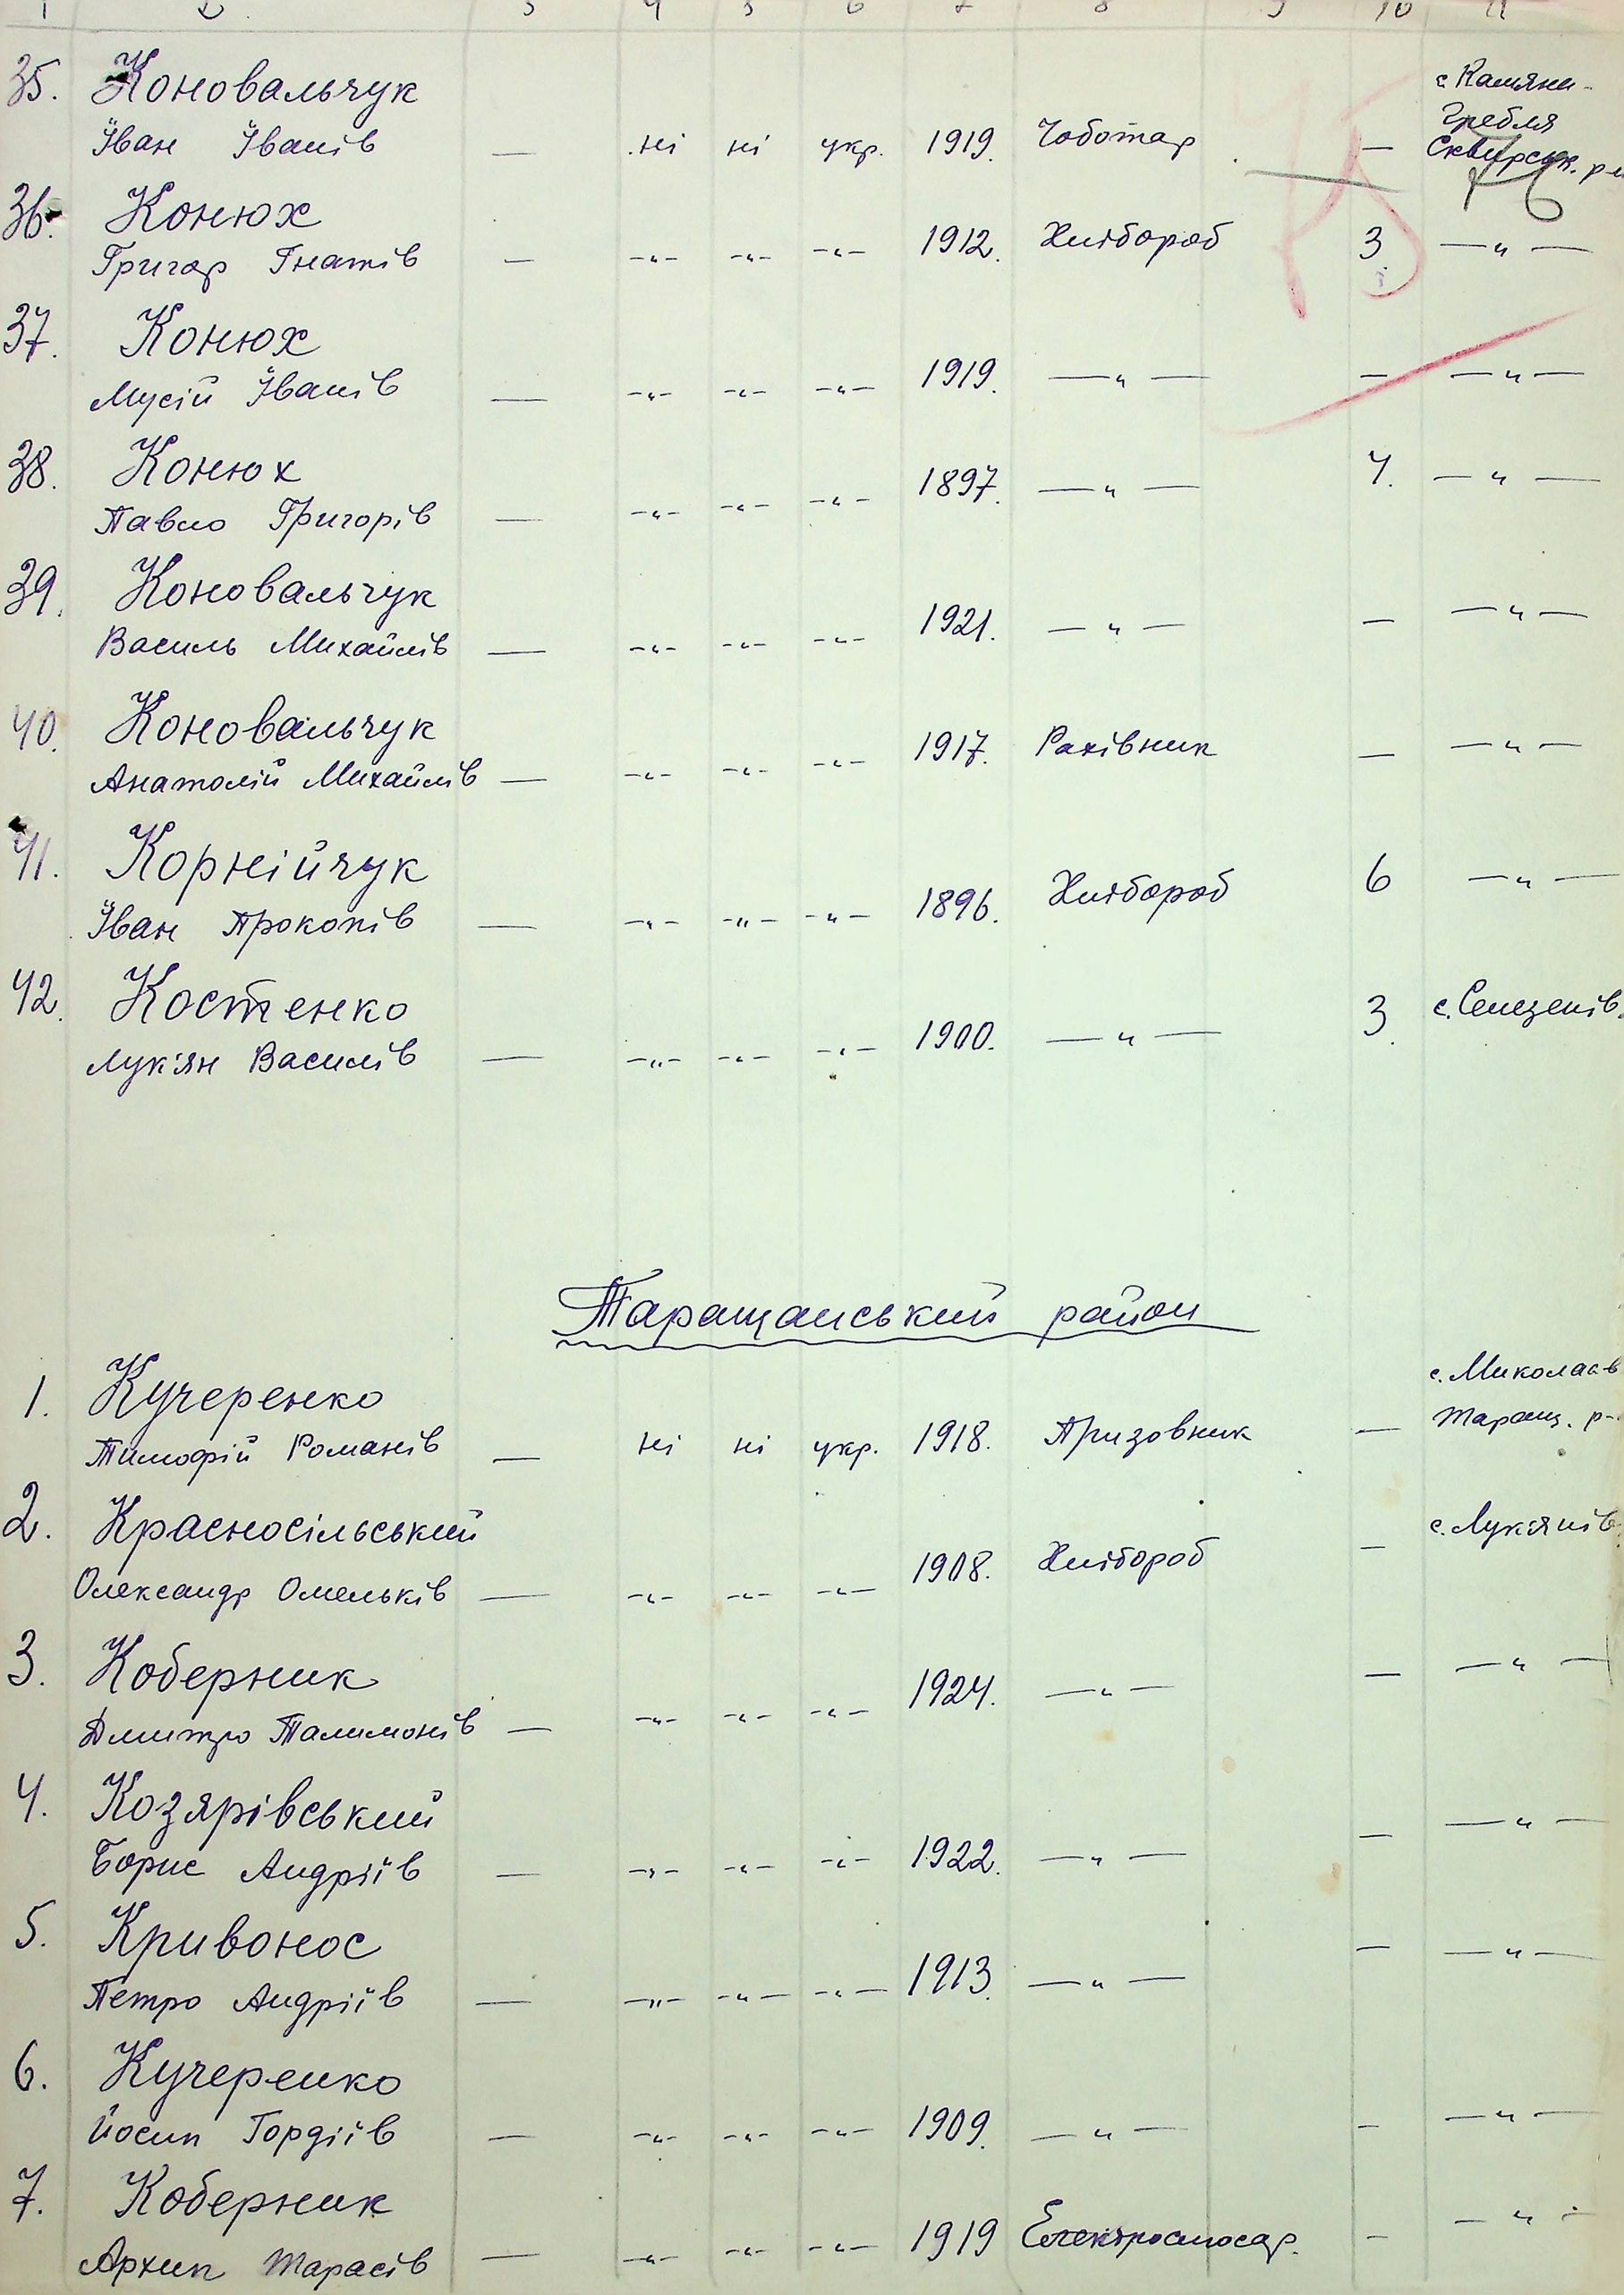 1 2 3 4 5 6 7 8 9 10 11
35. Коновальчук с Камяна-
Гребля
Іван Іванів — ні ні укр. 1919. Чоботар — Сквирськ. р-н
36. Конюх
Григор Гнатів — -"- -"- -"- 1912. Хлібороб 3. —"—
37. Конюх
Мусій Іванів — -"- -"- -"- 1919. —"— — —"—
38. Конюх
Павло Григорів — -"- -"- -"- 1897. —"— 4. —"—
39. Коновальчук
Василь Михайлів — -"- -"- -"- 1921. —"— — —"—
40. Коновальчук
Анатолій Михайлів — -"- -"- -"- 1917. Рахівник — —"—
41. Корнійчук
Іван Прокопів — -"- -"- -"- 1896. Хлібороб 6 —"—
42. Костенко
Лук'ян Василів — -"- -"- -"- 1900. —"— 3. с. Селезенів.
Таращанський район
1. Кучеренко с. Миколаєв
Тимофій Романів — ні ні укр. 1918. Призовник — Таращ. р-
2. Красносільський
Олександр Омельків — -"- -"- -"- 1908. Хлібороб — с. Лук'янів
3. Коберник
Дмитро Талимонів — -"- -"- -"- 1924. —"— — —"—
4. Козярівський
Борис Андріїв — -"- -"- -"- 1922. —"— — —"—
5. Кривонос
Петро Андріїв — -"- -"- -"- 1913. —"— — —"—
6. Кучеренко
Йосип Гордіїв — -"- -"- -"- 1909. —"— — —"—
7. Коберник
Архип Тарасів — -"- -"- -"- 1919 Електрослюсар. — —"—